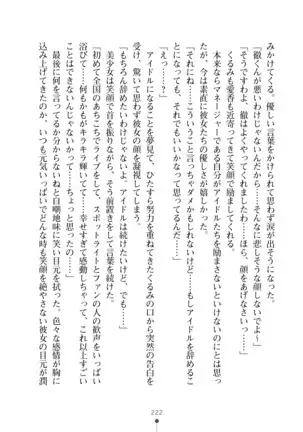 みかけてくる。優しい言葉をかけられて思わず涙が出そうに。
「徹くんが悪いわけじゃないんだけど……そんなに悲しそうな顔しないでよ〜」
「そうですわよ、徹はよくやってくれましたわ……ほら、顔をあげなさいっ……」
くるみも愛香も近寄ってきて笑顔で励ましてくれる。
本来ならマネージャーである自分がアイドルたちを励まさないといけないのにとは
思ったが、今は素直に彼女たちの優しさが嬉しかった。
「それにね……こういうこと言っちゃダメかもしれないけど……もしアイドルを辞めるこ
とになっても、それでもいいかもって思ってるんだ……」
「えっ……？」
アイドルになることを夢見て、ひたすら努力を重ねてきたくるみの口から突然の告白を
受け、驚いて思わず彼女の顔を凝視してしまう。
「もちろん辞めたいわけじゃないし、アイドルは続けたいけど、でも……」
美少女は笑顔で首を振りながら、そう前置きして言葉を続ける。
「初めて全国のあちこちでライブをして、スポットライトとファンの人の歓声をいっぱい
浴びて……何もかもがキラキラ輝いてて……幸せすぎて感動しちゃって、これ以上すごい
ことはできないんじゃないかなって……」
込み上げてきたのか、くるみは自嘲地味に笑い目元を拭った。色々な感情が胸に
いつも元気いっぱいでどんなときも笑顔を絶やさない彼女の目元が潤
222